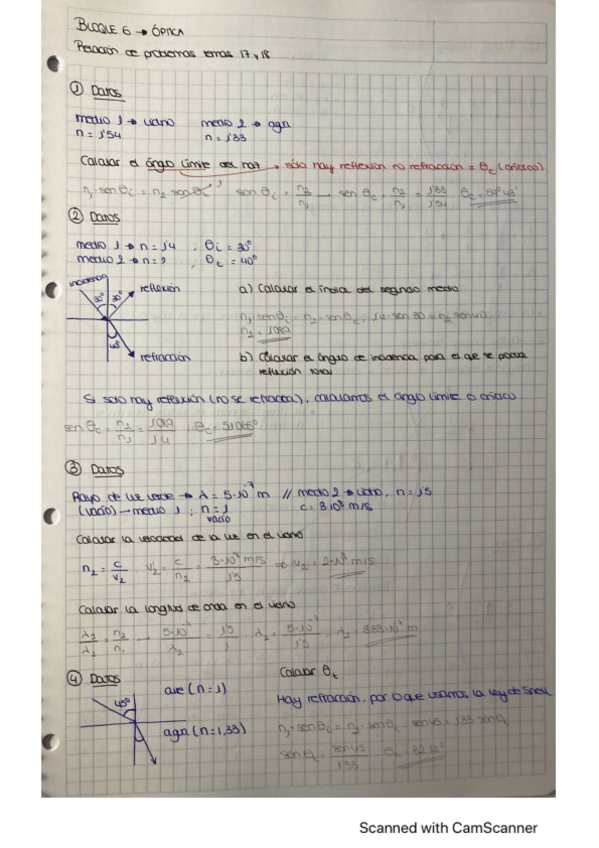 BLOQUE 6 → ÓPTICA
Relación de problemas temas 17 y 18
① DATOS
medio 1 → vidrio medio 2 → agua
n = 1'54 n = 1'33
Calcular el ángulo límite → sólo hay reflexión no refracción = θc (crítico)
n1 · sen θi = n2 sen θt sen θc = n2/n1 → sen θc = n2/n1 = 1'33/1'54
② DATOS
medio 1 → n = 1'4 ; θi = 30°
medio 2 → n = ? ; θt = 40°
incidencia
30° 30° reflexión
refracción
a) Calcular el índice del segundo medio
n1 · sen θi = n2 · sen θt ; 1'4 · sen 30 = n2 · sen 40
n2 = 1'089
b) Calcular el ángulo de incidencia para el que se produce
reflexión total
Si solo hay reflexión (no se refracta), calculamos el ángulo límite o crítico
sen θc = n2/n1 = 1'089/1'4 θc = 51'066°
③ DATOS
Rayo de luz verde → λ = 5·10⁻⁷ m // medio 2 → vidrio, n = 1'5
(vacío) → medio 1 ; n = 1 c = 3·10⁸ m/s
vacío
Calcular la velocidad de la luz en el vidrio
n2 = c/v2 ; v2 = c/n2 = 3·10⁸ m/s / 1'5 ⇒ v2 = 2·10⁸ m/s
Calcular la longitud de onda en el vidrio
λ1/λ2 = n2/n1 → 5·10⁻⁷/λ2 = 1'5/1 λ2 = 5·10⁻⁷/1'5
④ DATOS
45°
aire (n = 1)
agua (n = 1,33)
Calcular θt
Hay refracción, por lo que usamos la ley de Snell
n1 · sen θi = n2 · sen θt sen 45 = 1'33 sen θt
sen θt = sen 45/1'33
Scanned with CamScanner